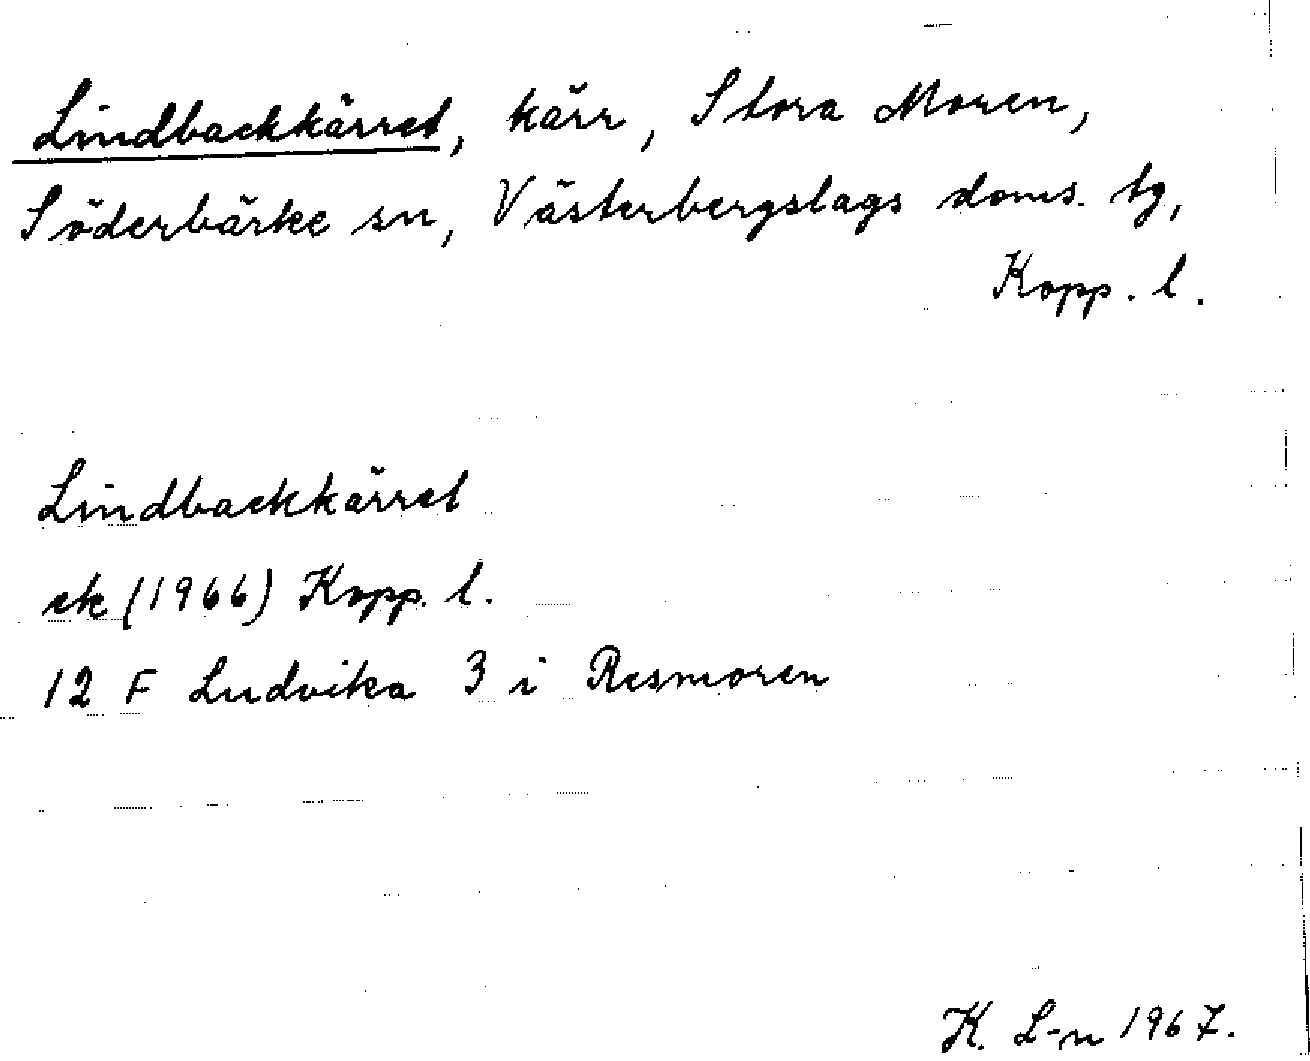 Lindbackkärret, kärr, Stora Moren,
Söderbärke sn, Västerbergslags doms. tg,
Kopp. l.
Lindbackkärret
ek (1966) Kopp. l.
12 F Ludvika 3 i Resmoren
K. L-n 1967.